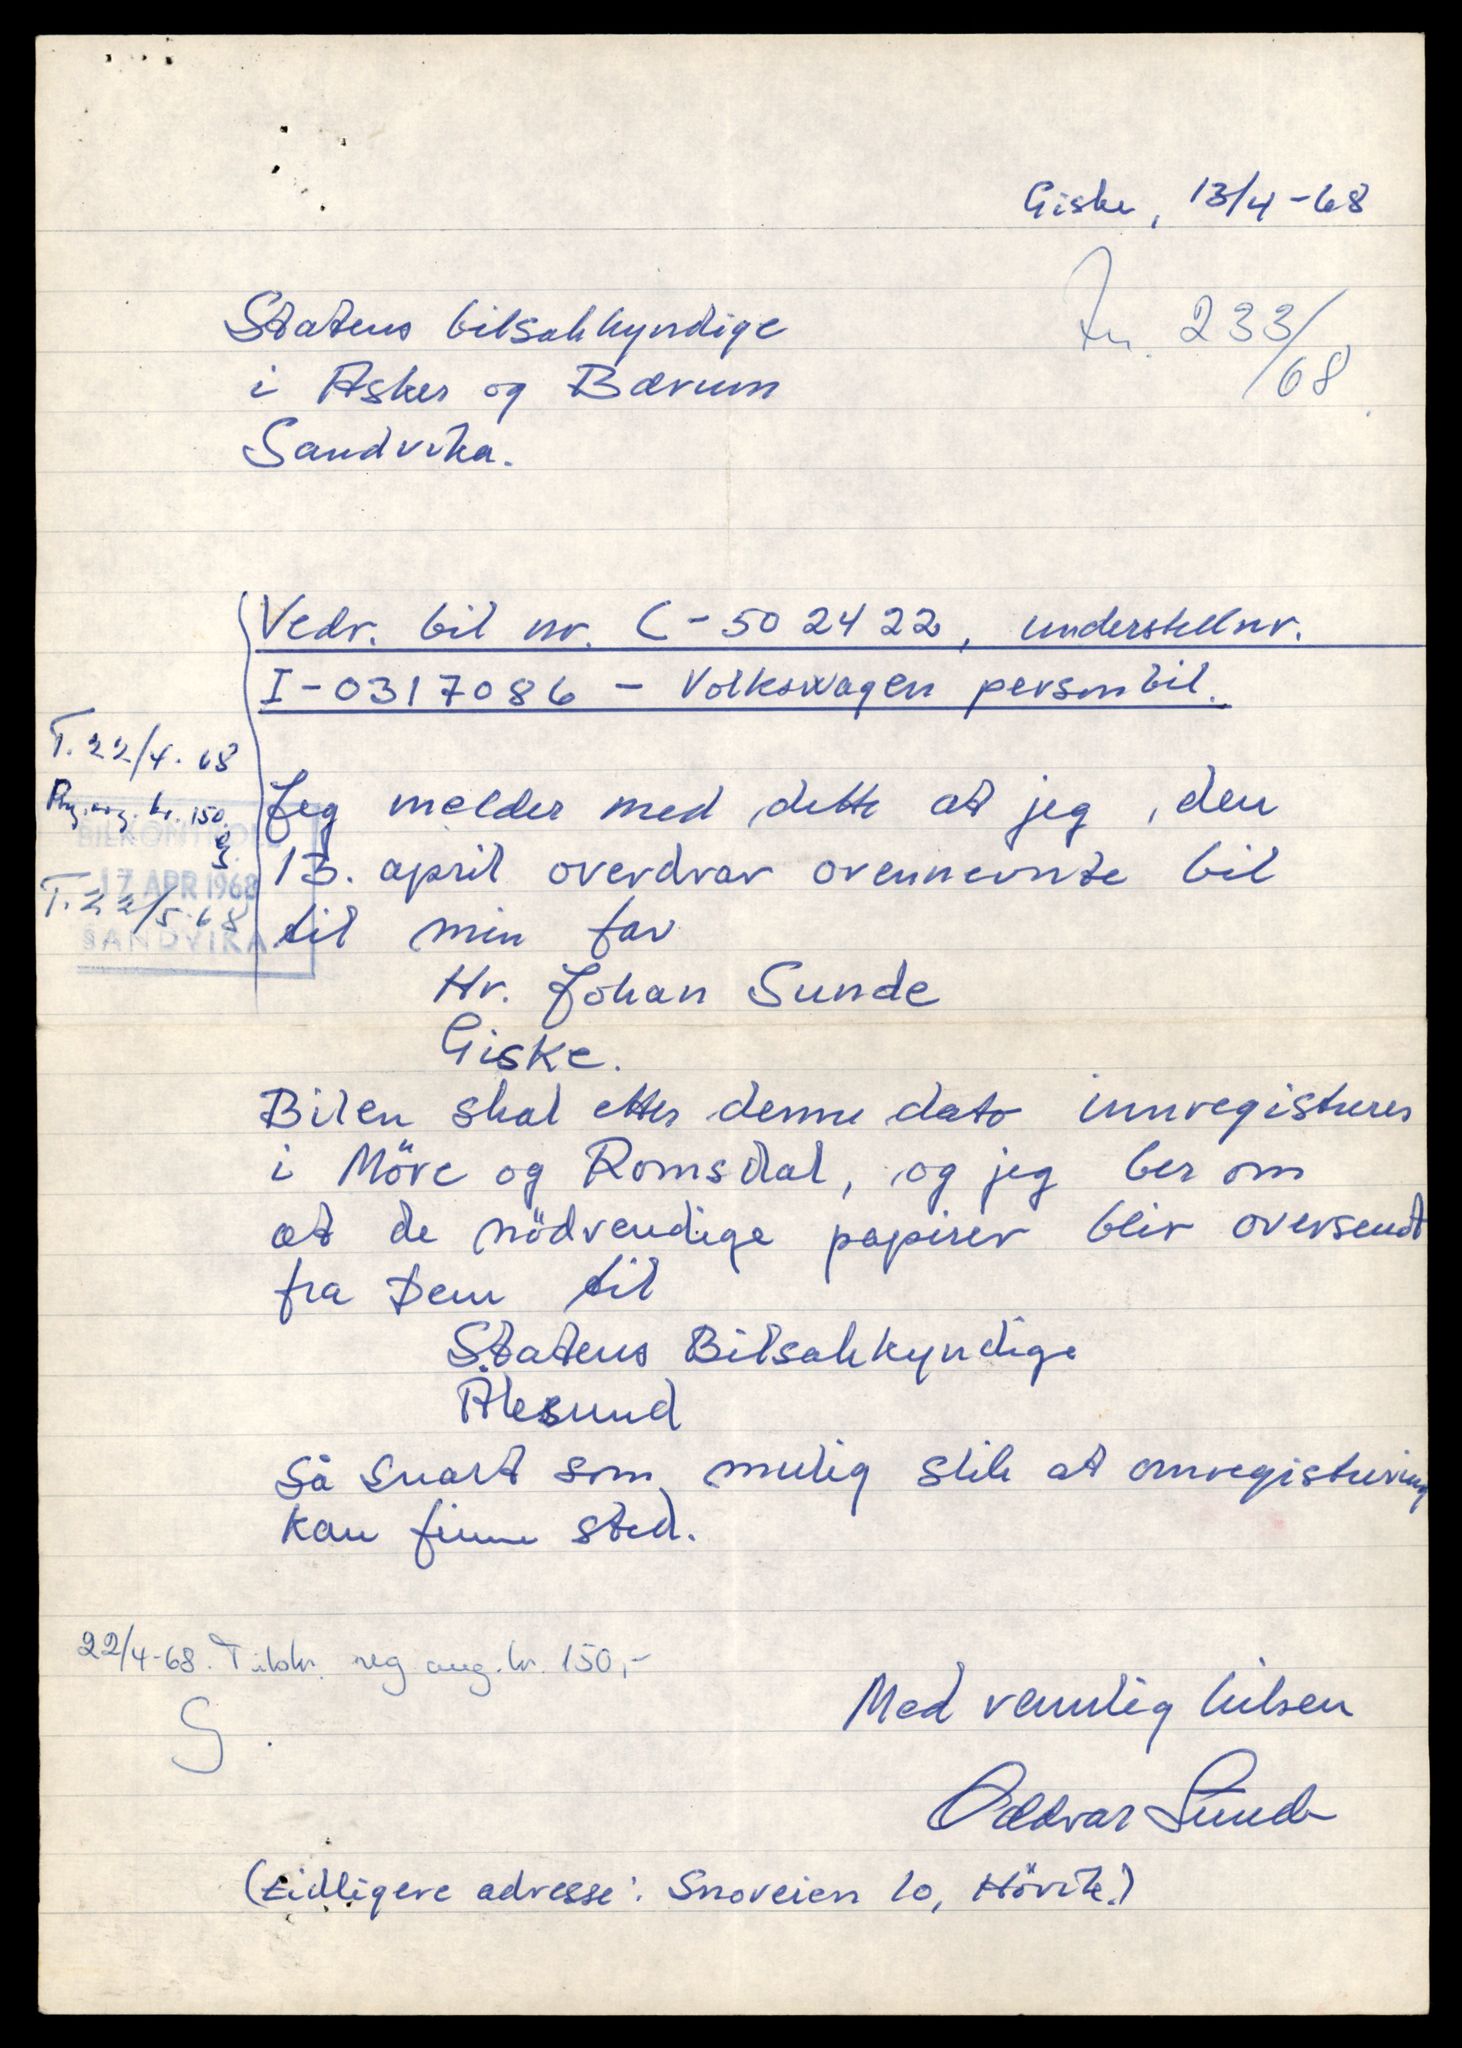 Giske, 13/4-68
Jn. 233/68
Statens bilsakkyndige
i Asker og Bærum
Sandvika.
Vedr. bil nr. C-502422, understellnr.
I-0317086 - Volkswagen personbil.
T. 22/4-68
kr. 150.
T. 22/5-68
BILKONTROLL
17 APR 1968
SANDVIKA
Jeg melder med dette at jeg, den
13. april overdrar ovennevnte bil
til min far
Hr. Johan Sunde
Giske.
Bilen skal etter denne dato innregistreres
i Möre og Romsdal, og jeg ber om
at de nödvendige papirer blir oversendt
fra Dem til
Statens Bilsakkyndige
Ålesund
så snart som mulig slik at omregistrering
kan finne sted.
22/4-68. Tilskr. reg avg. kr. 150,-
S.
Med vennlig hilsen
Oddvar Sunde
(tidligere adresse: Snoveien 10, Hövik.)